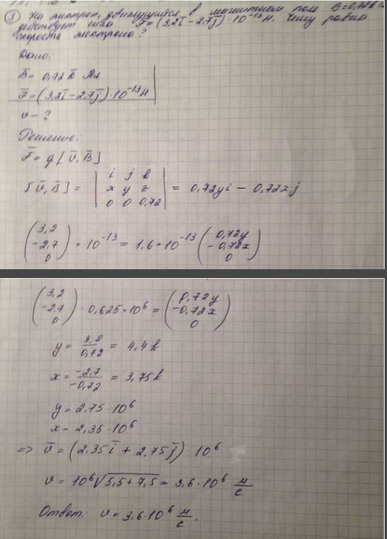 ① На электрон, движущийся в магнитном поле B̄=0,72k̄
действует сила F̄=(3,2ī-2,7j̄)·10⁻¹³Н. Чему равна
скорость электрона?
Дано:
B̄ = 0,72 k̄
F̄=(3,2ī-2,7j̄)10⁻¹³Н
v - ?
Решение:
F̄ = q[v̄,B̄]
[v̄,B̄] = | i j k | x y z | 0 0 0,72 | = 0,72yi - 0,72xj
(3,2 -2,7 0) · 10⁻¹³ = 1,6·10⁻¹³ (0,72y -0,72x 0)
(3,2 -2,7 0) · 0,625·10⁶ = (0,72y -0,72x 0)
y = 3,2/0,72 = 4,4k
x = -2,7/-0,72 = 3,75k
y = 2,75·10⁶
x = 2,35·10⁶
=> v̄ = (2,35ī + 2,75j̄)·10⁶
v = 10⁶√5,5+7,5 = 3,6·10⁶ м/с
Ответ: v = 3,6·10⁶ м/с.